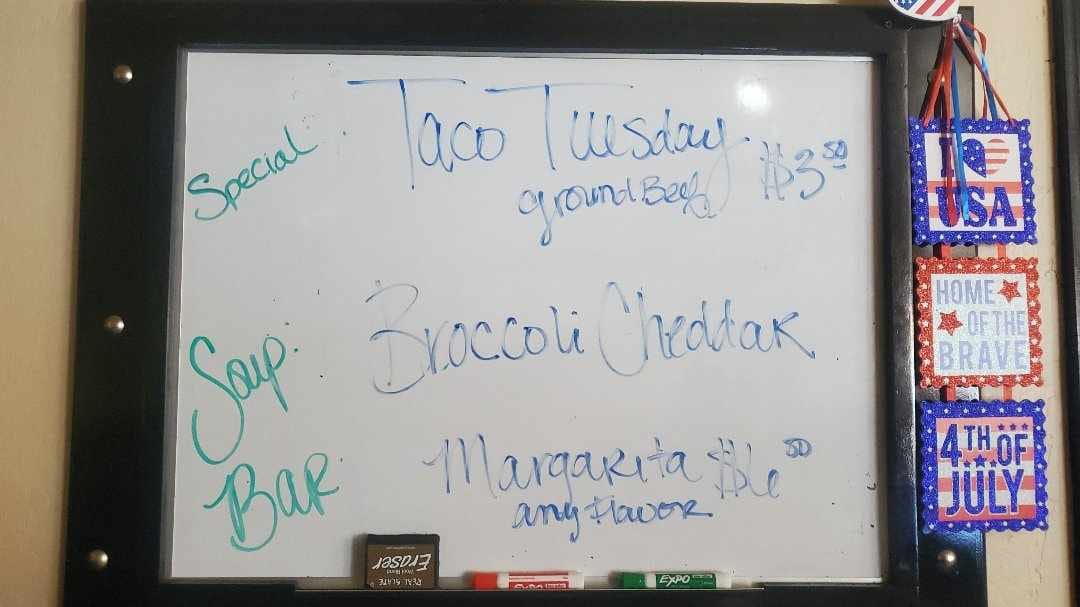 Special:
Taco Tuesday
ground Beef $3.50
Soup:
Broccoli Cheddar
Bar:
Margarita $6.50
any flavor
Eraser
REAL SLATE
EXPO
EXPO
I USA
HOME
OF THE
BRAVE
4TH OF
JULY